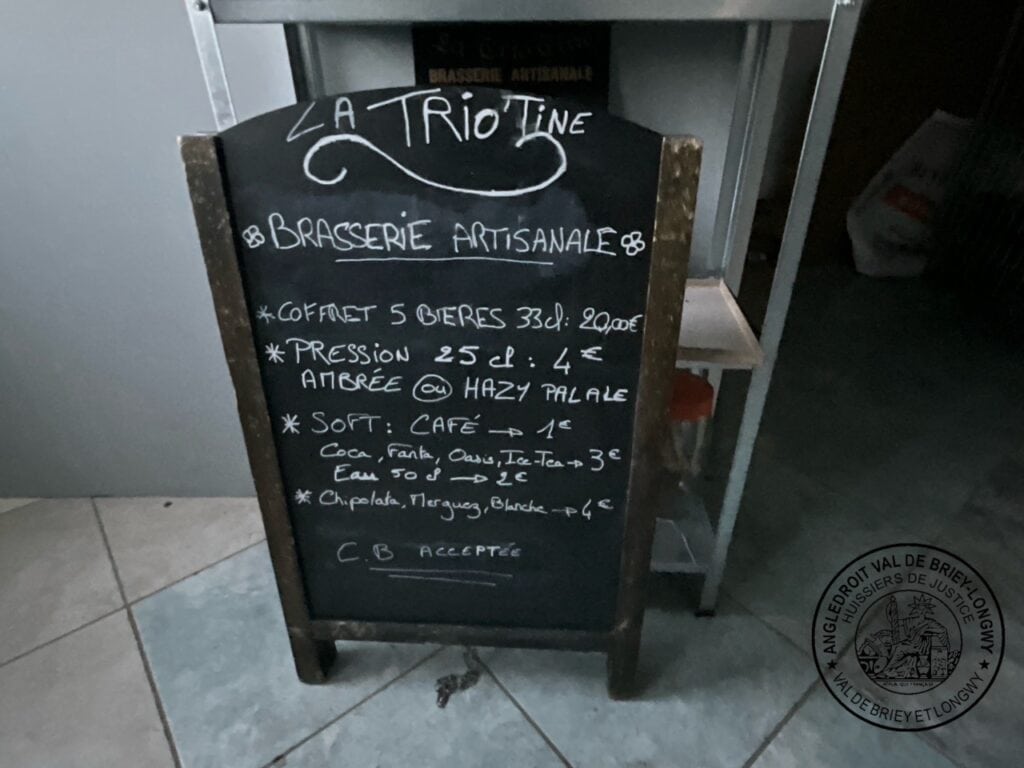 BRASSERIE ARTISANALE
LA TRIO'TINE
BRASSERIE ARTISANALE
* COFFRET 5 BIERES 33cl: 20,00€
* PRESSION 25cl: 4€
AMBRÉE OU HAZY PAL ALE
* SOFT: CAFÉ → 1€
Coca, Fanta, Oasis, Ice-Tea → 3€
Eau 50cl → 2€
* Chipolata, Merguez, Blanche → 4€
C.B ACCEPTÉE
ANGLEDROIT VAL DE BRIEY-LONGWY
HUISSIERS DE JUSTICE
VAL DE BRIEY ET LONGWY